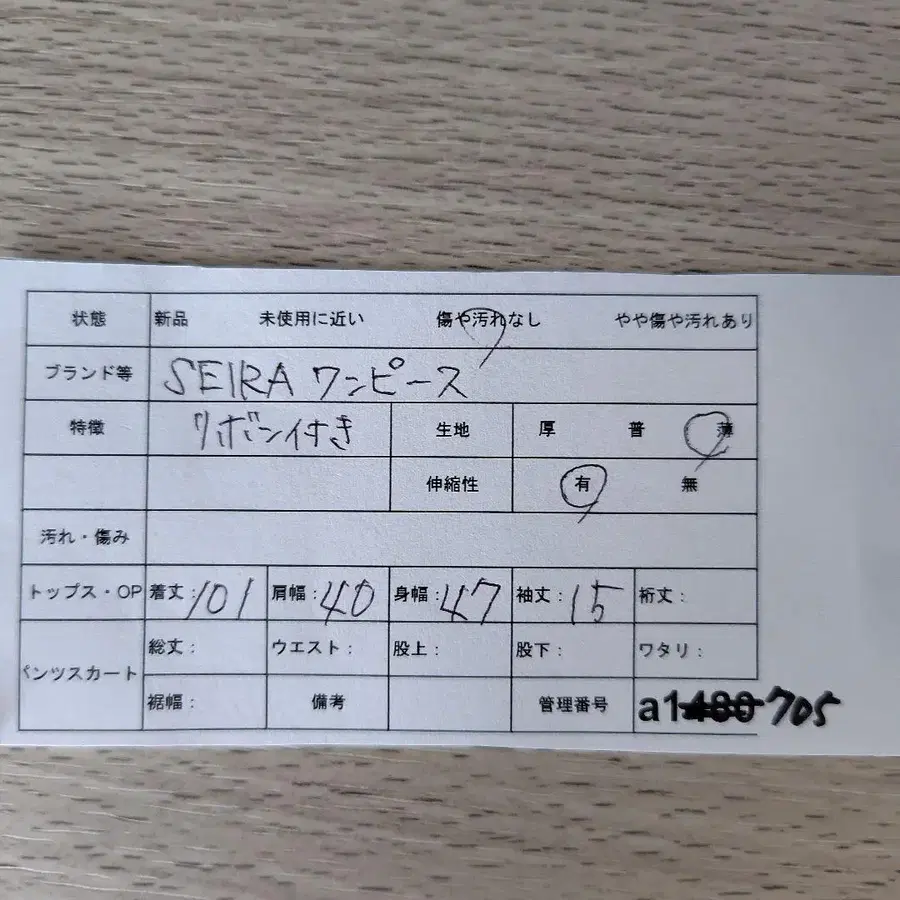 状態 新品 未使用に近い 傷や汚れなし やや傷や汚れあり
ブランド等 SEIRA ワンピース
特徴 リボン付き 生地 厚 普 薄
伸縮性 有 無
汚れ・傷み
トップス・OP 着丈:101 肩幅:40 身幅:47 袖丈:15 裄丈:
パンツスカート 総丈: ウエスト: 股上: 股下: ワタリ:
裾幅: 備考 管理番号 a1480 705